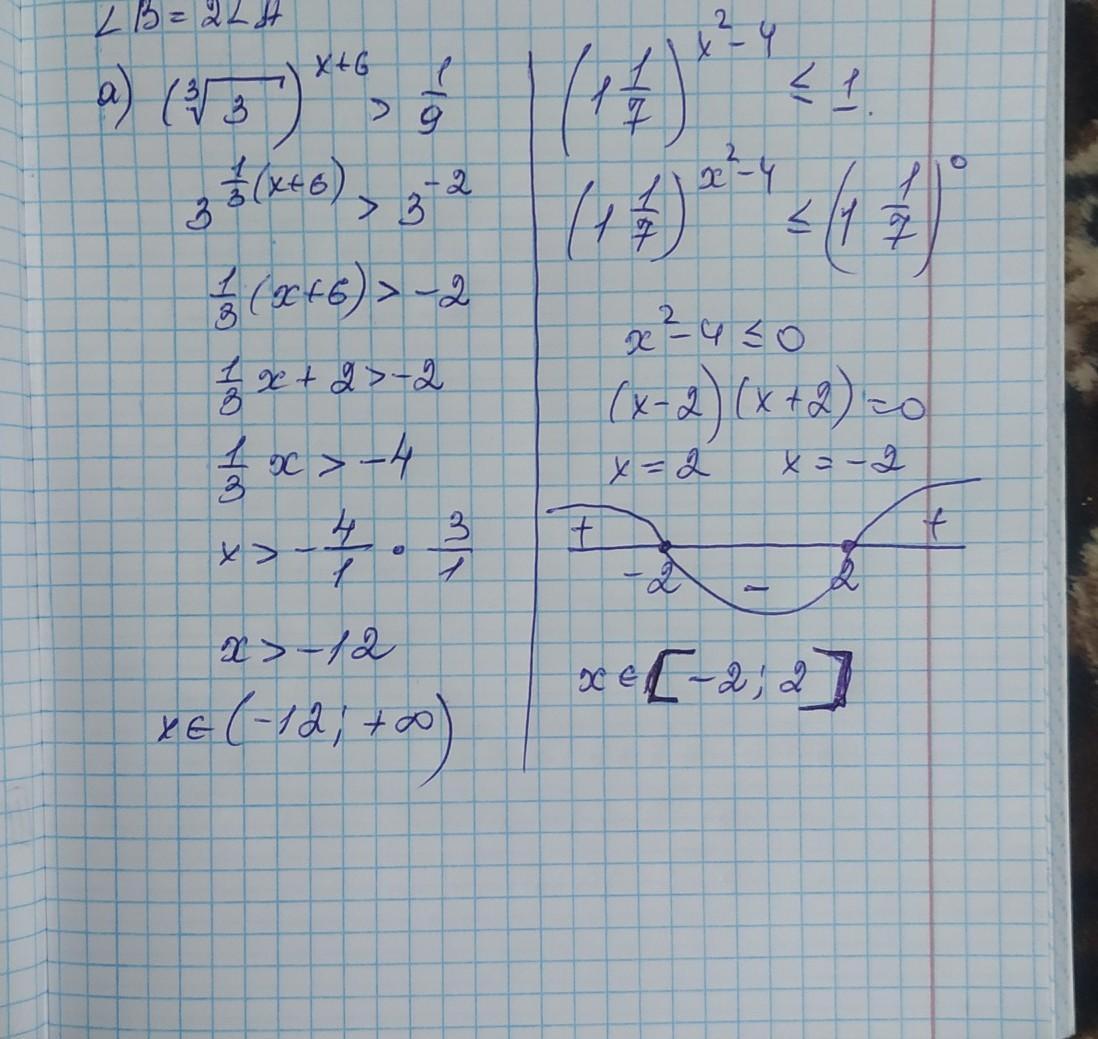 ∠B = 2∠A
a) (∛3)^(x+6) > 1/9
3^(1/3(x+6)) > 3^(-2)
1/3(x+6) > -2
1/3 x + 2 > -2
1/3 x > -4
x > -4/1 · 3/1
x > -12
x ∈ (-12; +∞)
(1 1/7)^(x²-4) ≤ 1.
(1 1/7)^(x²-4) ≤ (1 1/7)^0
x² - 4 ≤ 0
(x-2)(x+2) = 0
x = 2 x = -2
+ - +
-2 2
x ∈ [-2; 2]